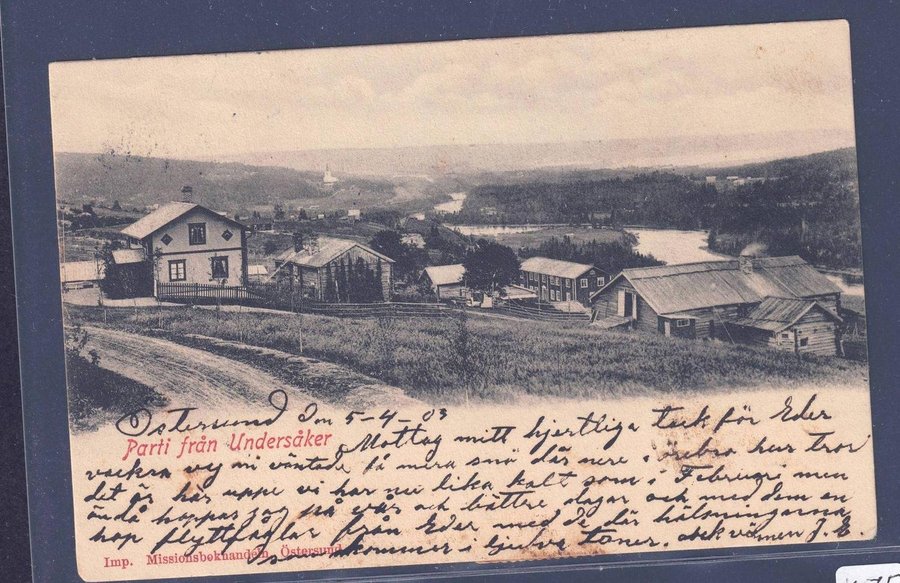 Östersund Den 5-4-03
Parti från Undersåker
Mottag mitt hjertliga tack för Eder
vackra vy ni väntade få mera snö där nere i örebro hur tror
det är här uppe vi har nu lika kalt som i Februari men
ändå hoppas jag på vår och bättre dagar och med dem en
hop flyttfåglar från Eder med de där hälsningarna
kommer i ljudva toner. vännen J. E.
Imp. Missionsbokhandeln, Östersund